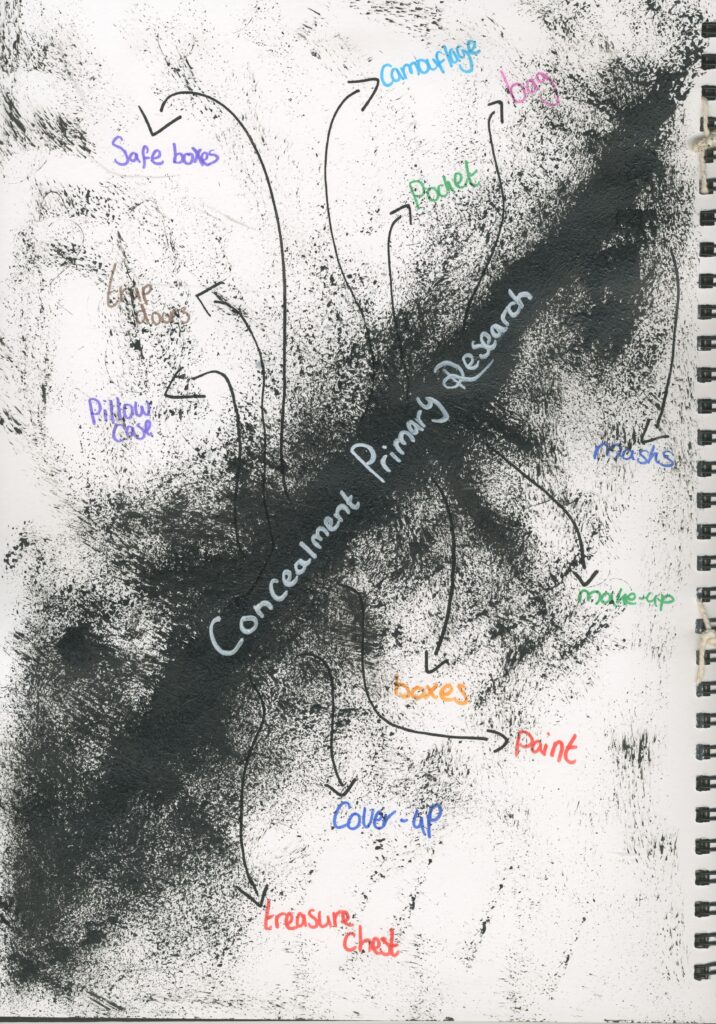 Camouflage
bag
Safe boxes
Pocket
trap
doors
Pillow
case
Concealment Primary Research
masks
make-up
boxes
Paint
Cover-up
treasure
chest